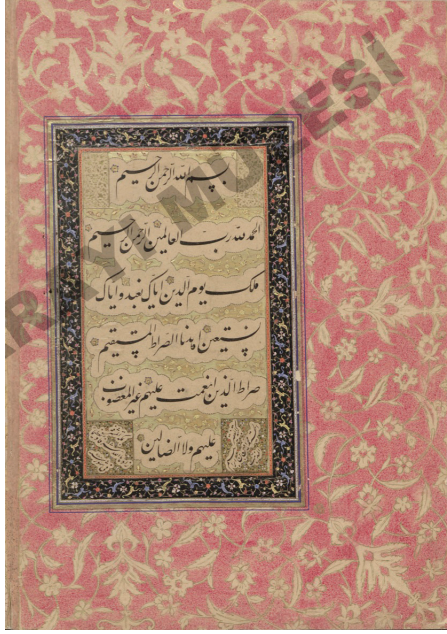 بسم الله الرحمن الرحيم
الحمد لله رب العالمين الرحمن الرحيم
ملك يوم الدين اياك نعبد و اياك
نستعين اهدنا الصراط المستقيم
صراط الذين انعمت عليهم غير المغضوب
عليهم ولا الضالين
ARAYI MÜZESİ